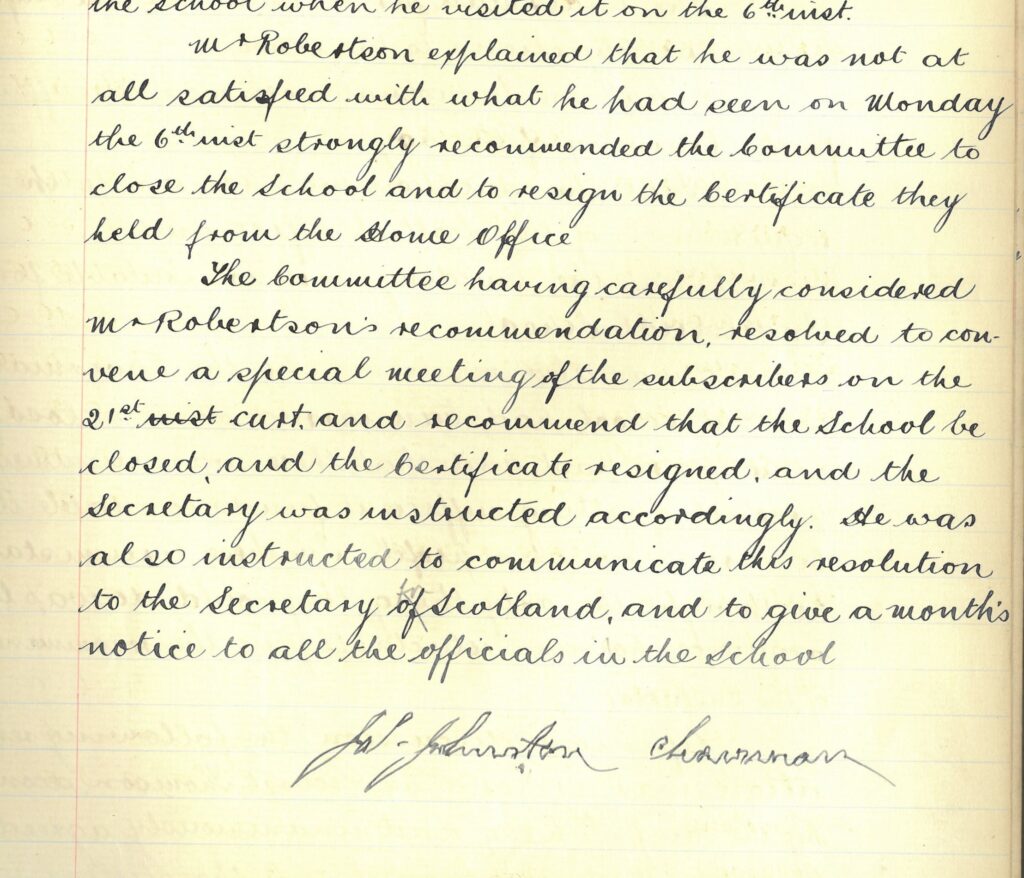 the school when he visited it on the 6th inst.
Mr Robertson explained that he was not at
all satisfied with what he had seen on Monday
the 6th inst strongly recommended the Committee to
close the School and to resign the Certificate they
held from the Home Office
The Committee having carefully considered
Mr Robertson's recommendation, resolved to con-
vene a special meeting of the subscribers on the
21st inst curt. and recommend that the School be
closed, and the Certificate resigned, and the
Secretary was instructed accordingly. He was
also instructed to communicate this resolution
to the Secretary of Scotland, and to give a month's
notice to all the officials in the School
Johnston Chairman